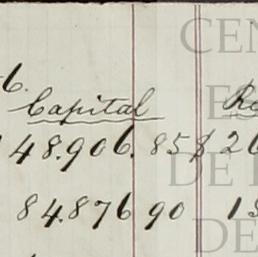 6.
Capital
48.906.85 $ 26
84.876 90 13
CEN
E
DE
DE